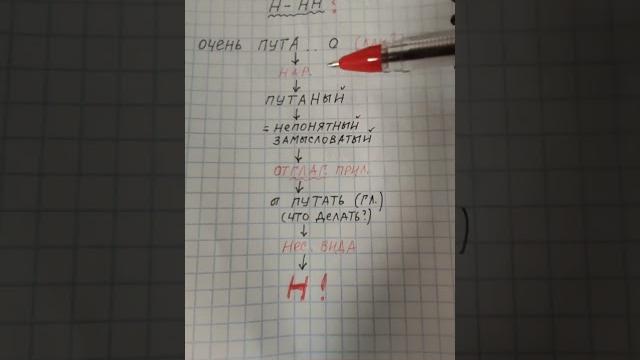 Н - НН?
ОЧЕНЬ ПУТА..О
НАР.
ПУТАНЫЙ
= НЕПОНЯТНЫЙ
ЗАМЫСЛОВАТЫЙ
ОТГЛАГ. ПРИЛ.
от ПУТАТЬ (ГЛ.)
(ЧТО ДЕЛАТЬ?)
НЕС. ВИДА
Н!